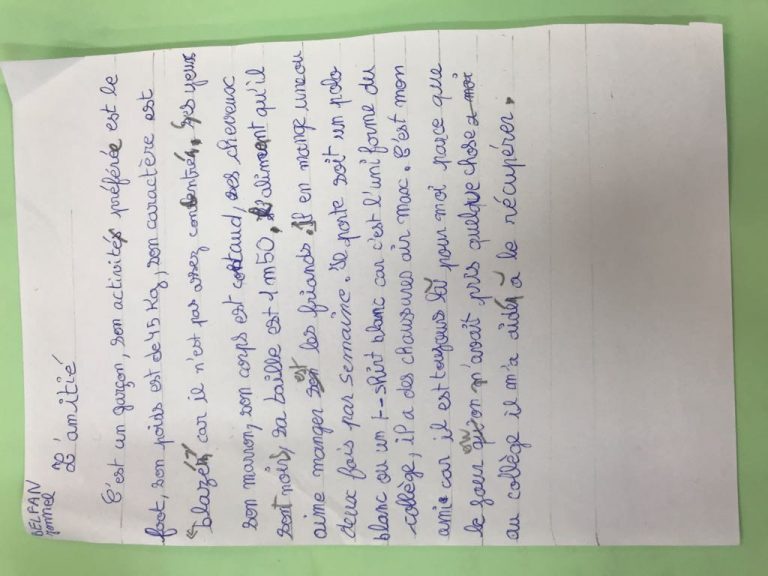 DELFAN
L'amitié
C'est un garçon, son activités préférée est le
foot, son poids est de 45 Kg, son caractère est
"blazé" car il n'est pas assez concentrés, ses yeux
son marron, son corps est costaud, ses cheveux
sont noirs, sa taille est 1m50, l'aliment qu'il
aime manger est les friands. Il en mange une ou
deux fois par semaine. Il porte soit un polo
blanc ou un t-shirt blanc car c'est l'uniforme du
collège, il a des chaussures air max. C'est mon
amie car il est toujours là pour moi parce que
le jour où on m'avait pris quelque chose a moi
au collège il m'a aidé à le récupérer.